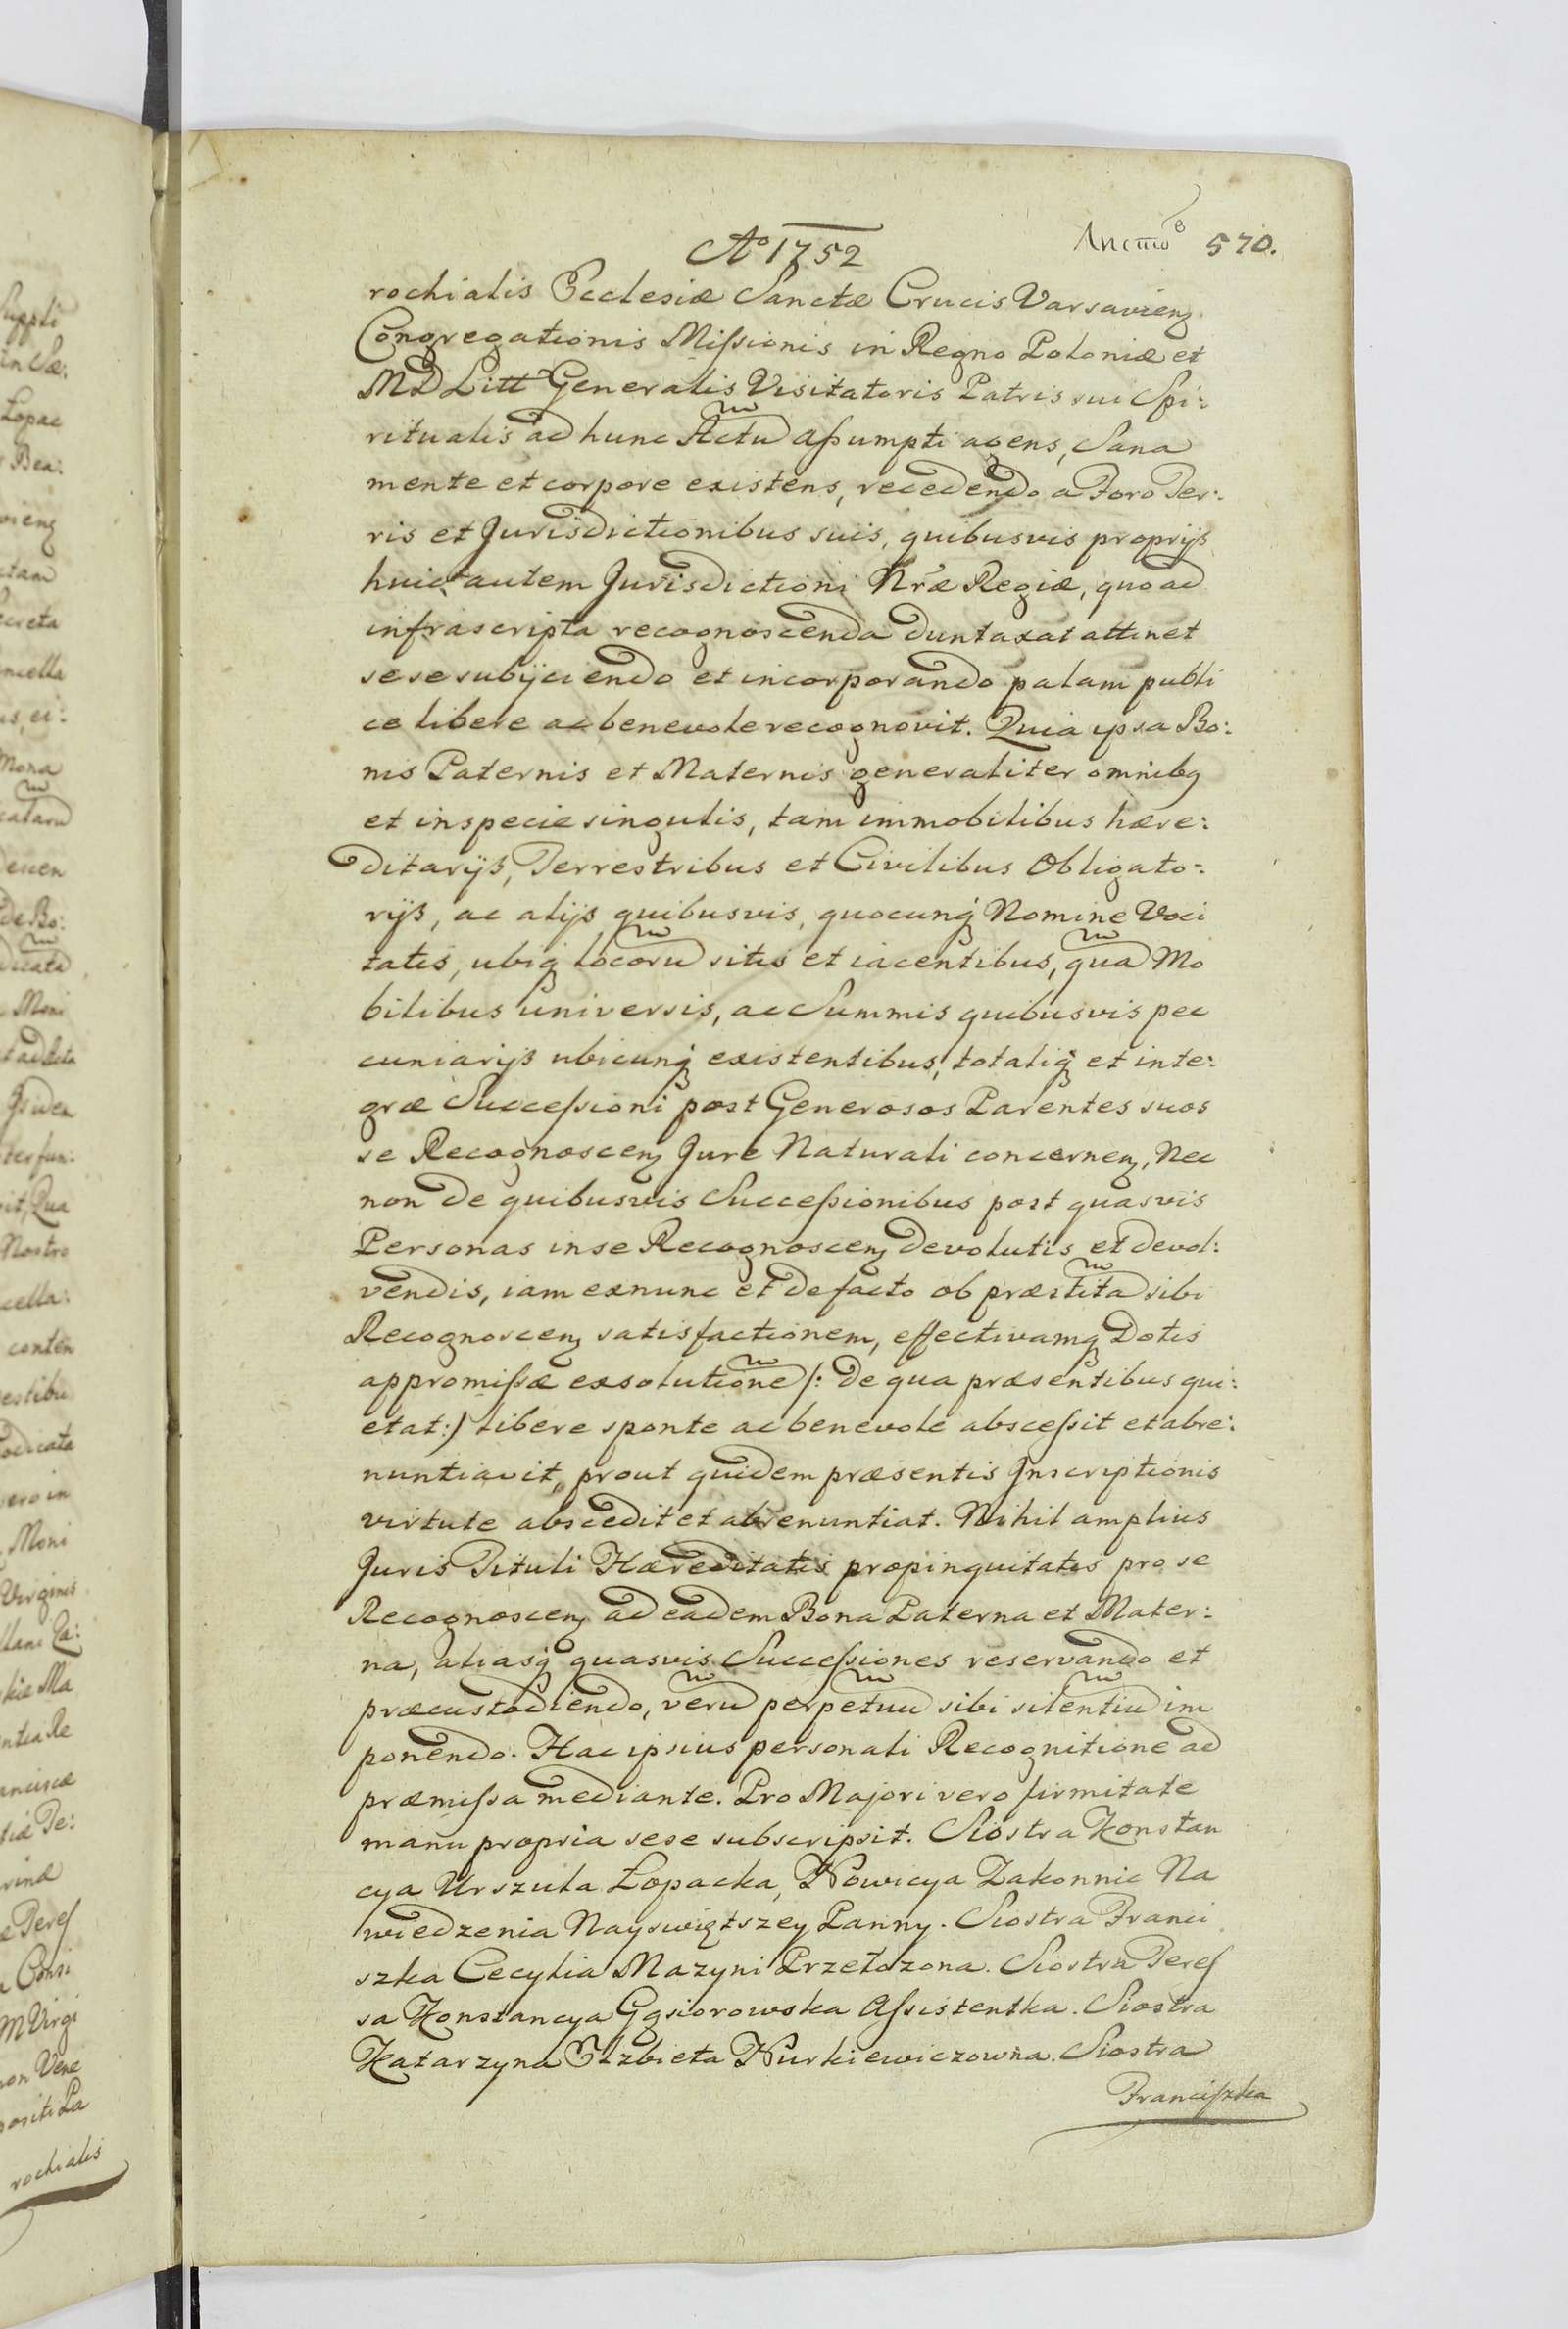 Ao 1752
Листъ 570.
rochialis Ecclesiæ Sanctæ Crucis Varsavienꝫ
Congregationis Miſsionis in Regno Poloniæ et
MD Litt Generalis Visitatoris Patris sui Spi:
ritualis ad hunc Actu̅ aſsumpti agens, Sana
mente et corpore existens, recedendo a Foro Ter:
ris et Jurisdictionibus suis, quibusvis proprijs
huic autem Jurisdictioni Nræ Regiæ, quo ad
infrascripta recognoscenda duntaxat attinet
sese subijciendo et incorporando palam publi
ce libere ac benevole recognovit. Quia ipsa Bo:
nis Paternis et Maternis generaliter omnibꝫ
et in specie singulis, tam immobilibus hære:
ditarijs, Terrestribus et Civilibus Obligato:
rijs, ac alijs quibusvis, quocunqꝫ Nomine Voci
tatis, ubiqꝫ locoru̅ sitis et iacentibus, qua̅ Mo
bilibus universis, ac Summis quibusvis pec
cuniarijs ubicunqꝫ existentibus, totaliqꝫ et inte:
græ Succeſsioni post Generosos Parentes suos
se Recognoscenꝫ Jure Naturali concernenꝫ, Nec
non de quibusvis Succeſsionibus post quasvis
Personas in se Recognoscenꝫ devolutis et devol:
vendis, iam exnunc et de facto ob præstita̅ sibi
Recognoscenꝫ satisfactionem, effectivamqꝫ Dotis
appromiſsæ exsolutione̅ /: de qua præsentibus qui:
etat :/ libere sponte ac benevole absceſsit et abre:
nuntiavit, prout quidem præsentis Inscriptionis
virtute abscedit et abrenuntiat. Nihil amplius
Juris Tituli Hæreditatis propinquitatis pro se
Recognoscenꝫ ad eadem Bona Paterna et Mater:
na, aliasqꝫ quasvis Succeſsiones reservando et
præcustodiendo, veru̅ perpetuu̅ sibi silentiu̅ im
ponendo. Hac ipsius personali Recognitione ad
præmiſsa mediante. Pro Majori vero firmitate
manu propria sese subscripsit. Siostra Konstan
cya Urszula Łopacka, Nowicya Zakonnic Na
wiedzenia Nayswiętszey Panny. Siostra Franci
szka Cecylia Mazyni Przełozona. Siostra Tereſ
sa Konstancya Gąsiorowska Aſsistentka. Siostra
Katarzyna Elzbieta Hurkiewiczowna. Siostra
Franciſzka